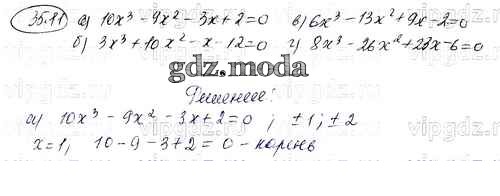 35.11 а) 10x³ - 9x² - 3x + 2 = 0 в) 6x³ - 13x² + 9x - 2 = 0
б) 3x³ + 10x² - x - 12 = 0 г) 8x³ - 26x² + 23x - 6 = 0
gdz.moda
Решение:
а) 10x³ - 9x² - 3x + 2 = 0 ; ±1; ±2
x = 1, 10 - 9 - 3 + 2 = 0 - корень